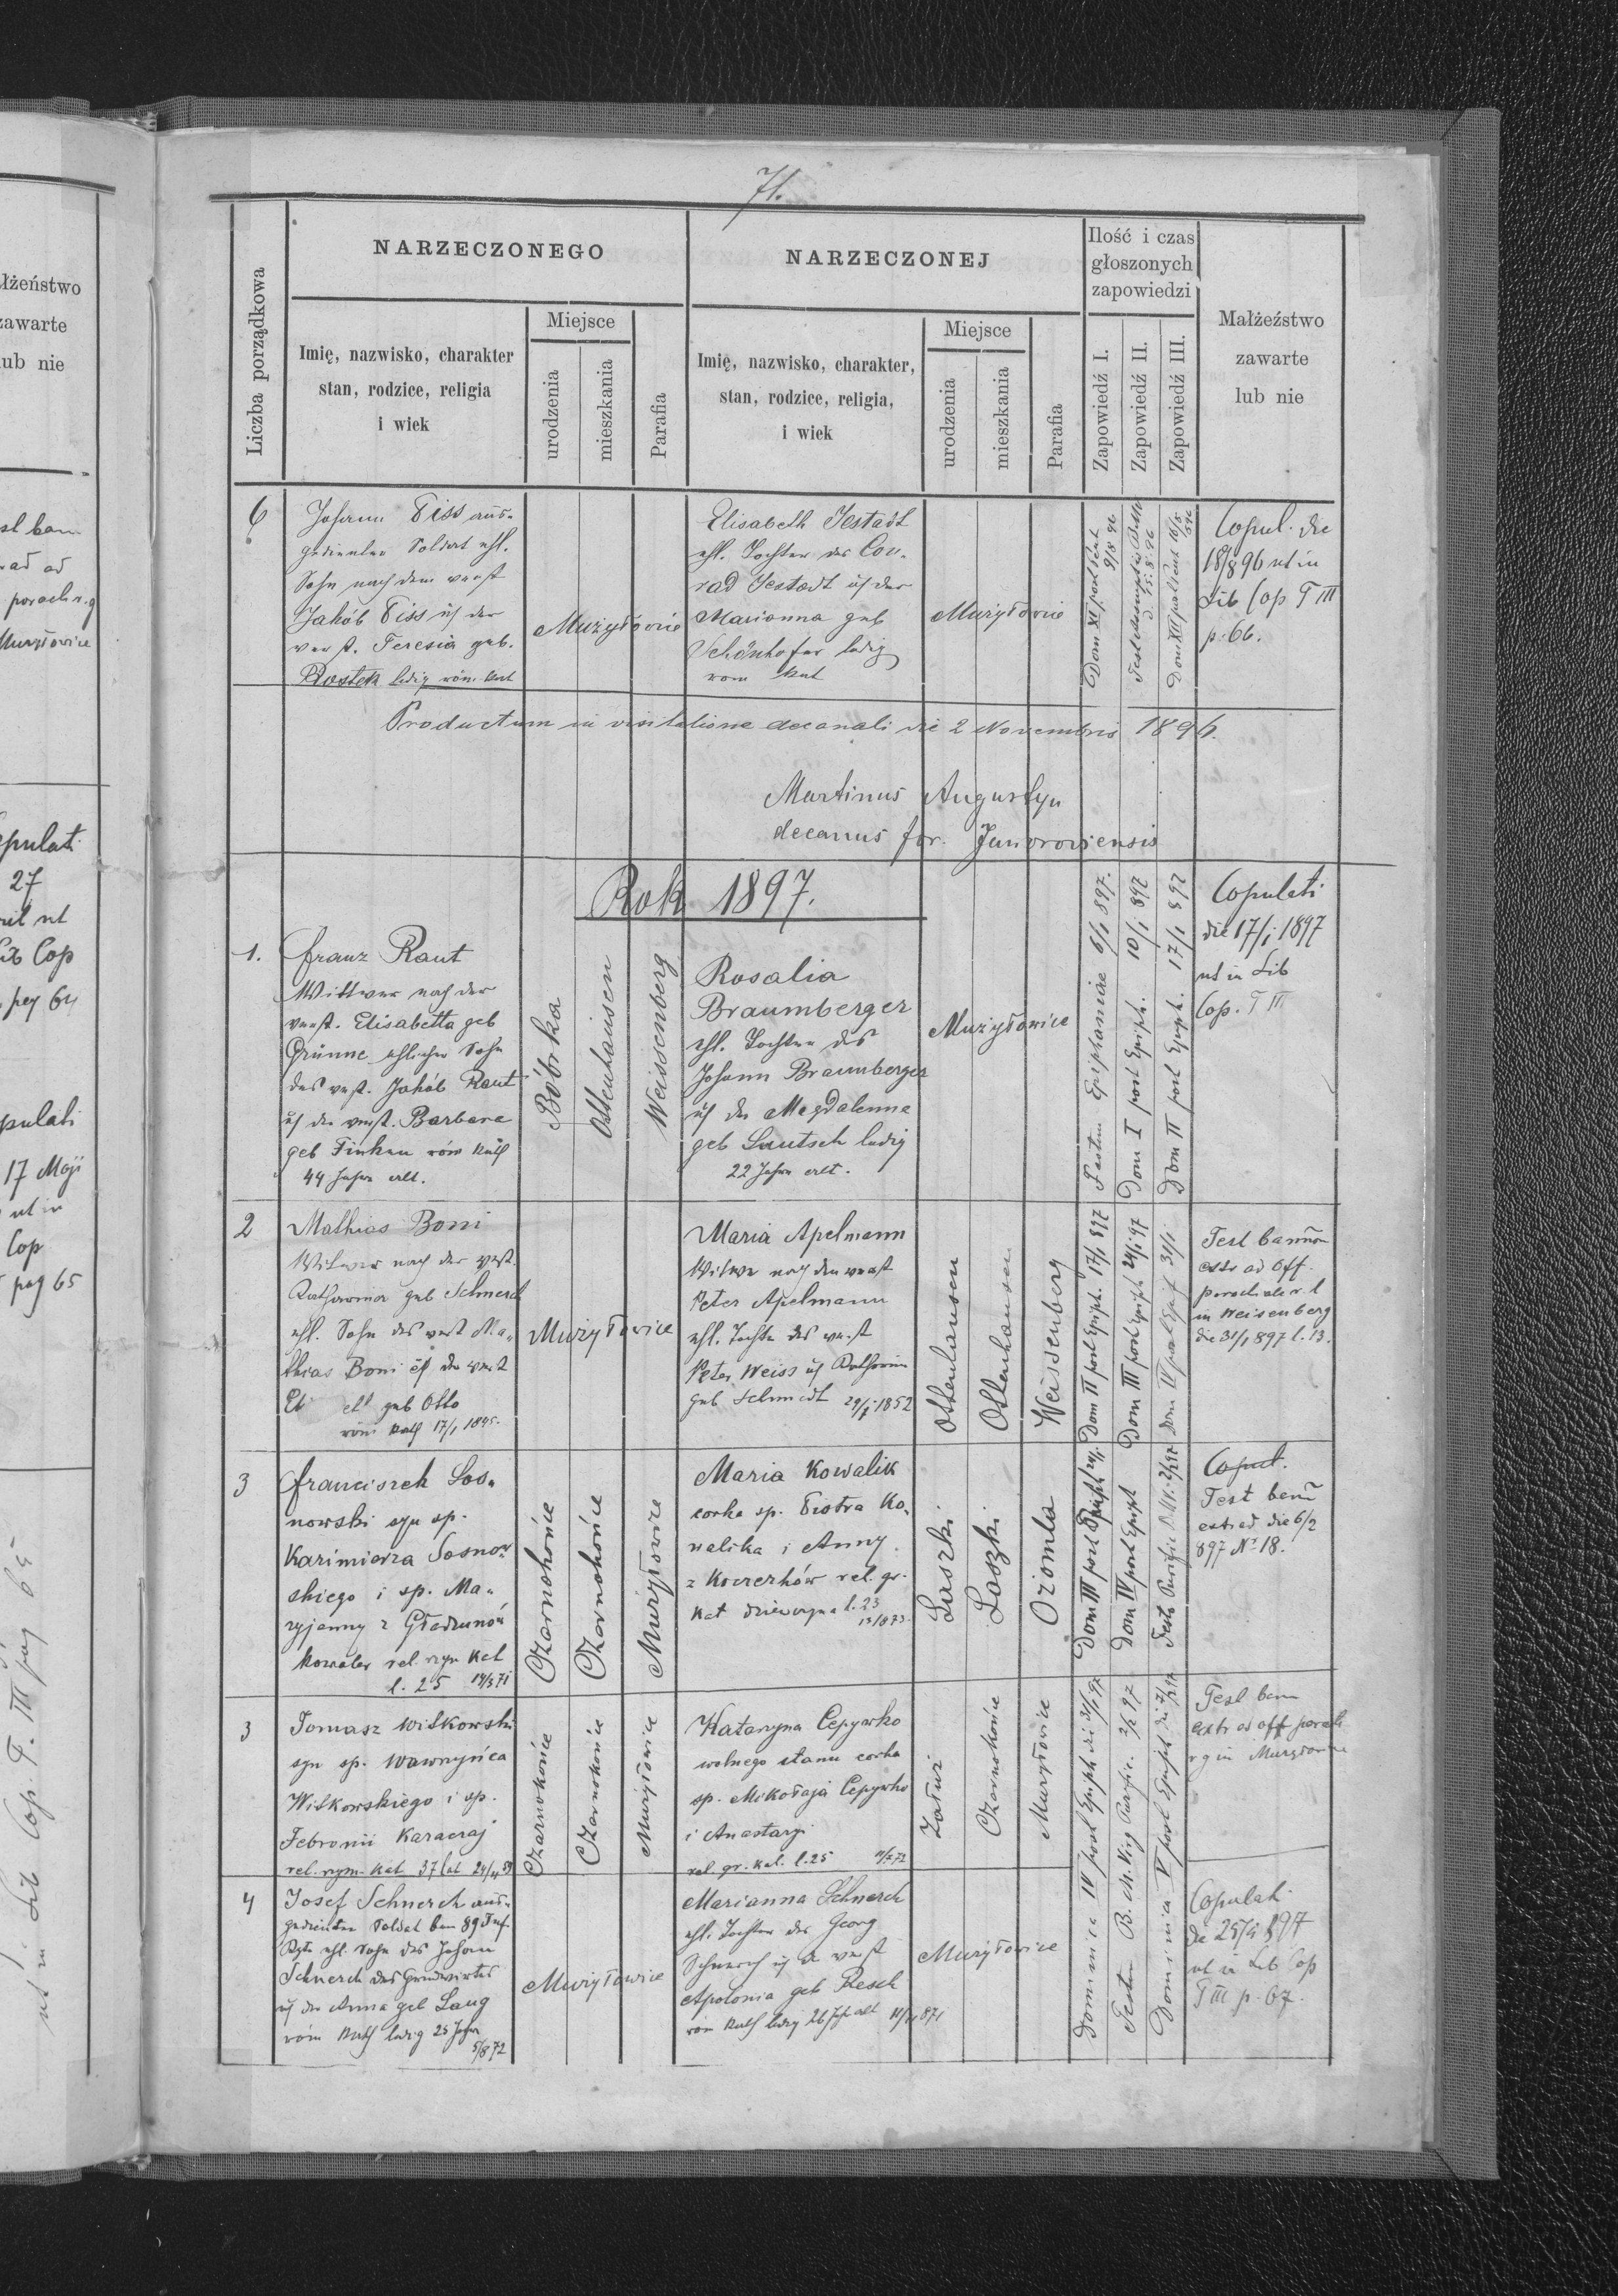 71.
Liczba porządkowa
NARZECZONEGO
Imię, nazwisko, charakter
stan, rodzice, religia
i wiek
Miejsce
urodzenia
mieszkania
Parafia
NARZECZONEJ
Imię, nazwisko, charakter,
stan, rodzice, religia,
i wiek
Miejsce
urodzenia
mieszkania
Parafia
Ilość i czas
głoszonych
zapowiedzi
Zapowiedź I.
Zapowiedź II.
Zapowiedź III.
Małżeźstwo
zawarte
lub nie
6
Johann Tiss aus-
gedienter Soldat ehl.
Sohn nach dem verst
Jakób Tiss u der
verst. Teresia geb.
Rostek ledig röm. kat
Mużyłowice
Elisabeth Jestadt
ehl. Tochter des Con-
rad Jestadt u der
Marianna geb
Schönhofer ledig
rom kat
Mużyłowice
Dom XI post Pent
9/8 96
Fest Assumptio
d. 15. 8. 96
Dom XII post Pent 16/8
896
Copul. die
18/8 96 ut in
Lib Cop T III
p. 66.
Productum in visitatione decanali die 2 Novembris 1896.
Martinus Augustyn
decanus for. Javoroviensis
Rok 1897.
1.
Franz Raut
Wittwer nach der
verst. Elisabetta geb
Grünne ehlicher Sohn
des verst. Jakób Raut
u der verst. Barbara
geb Finkau röm kath
44 Jahre alt.
Bóbrka
Ottenhausen
Weissenberg
Rosalia
Braumberger
ehl. Tochter des
Johann Braumberger
u der Magdalenna
geb Lautsch ledig
22 Jahre alt.
Mużyłowice
Festum Epiphaniae 6/1 897.
Dom I post Epiph. 10/1 897
Dom II post Epiph. 17/1 897
Copulati
die 17/1 1897
ut in Lib
Cop. T III
2
Mathias Boni
Witwer nach der verst.
Katharina geb Schnerch
ehl. Sohn des verst Ma-
thias Boni u der verst
geb Otto
röm kath 17/1 1845.
Mużyłowice
Maria Apelmann
Witwe nach dem verst
Peter Apelmann
ehl. Tochter des verst
Peter Weiss u Katharina
geb Schmidt 29/7 1852
Ottenhausen
Ottenhausen
Weissenberg
Dom II post Epiph. 17/1 897
Dom III post Epiph 24/1 97
Dom IV post Epif 31/1
Test bannor
extr ad Off.
parochiale r. l
in Weisenberg
die 31/1 897 l. 13.
3
Franciszek Sos-
nowski syn sp.
Kazimierza Sosnow-
skiego i sp. Ma-
ryjanny z Gładzunów
kowalev rel. rzym kat
l. 25 14/3 71
Czarnokońce
Czarnokońce
Mużyłowice
Maria Kowalik
corka sp. Piotra Ko-
walika i Anny
z Koczerków rel. gr.
kat dziewczyna l. 23
13/873
Laszki
Laszki
Ożomla
Dom III post Epiph 24/1
Dom IV post Epiph
Festo Purific. B. M. V. 2/2 97
Copul.
Test bann
extr ad die 6/2
897 N° 18.
3
Tomasz Witkowski
syn sp. Wawrzyńca
Witkowskiego i sp.
Febronii Karacraj
rel. rzym. kat 37 lat 24/11 59
Czarnokońce
Czarnokońce
Mużyłowice
Katarzyna Cepywko
wolnego stanu corka
sp. Mikołaja Cepywko
i Anastazyi
rel. gr. kat. l. 25 11/2 72
Załuż
Czarnokońce
Mużyłowice
Dominica IV post Epiph die 31/1 97
Festum B. M. Virg Purific. 2/2 97
Dominica V post Epiph die 7/2 97
Test bann
extr ad off paroch
r g in Mużyłowice
4
Josef Schnerch aus-
gedienter Soldat beim 89 Inf
Rgte ehl. Sohn des Johann
Schnerch des Grundwirtes
u der Anna geb Lang
röm kath ledig 25 Jahre
5/8 72
Mużyłowice
Marianna Schnerch
ehl. Tochter des Georg
Schnerch u der verst
Apolonia geb Resch
röm kath ledig 26 Jahr alt 11/11 871
Mużyłowice
Copulat.
die 25/2 897
ut in Lib Cop
T III p. 67.
łżeństwo
zawarte
lub nie
Mużyłowice
pulati
27
Lib Cop
pag 64
pulati
17 Maji
ut in
Cop
pag 65
ut in Lib Cop. T. III pag 65